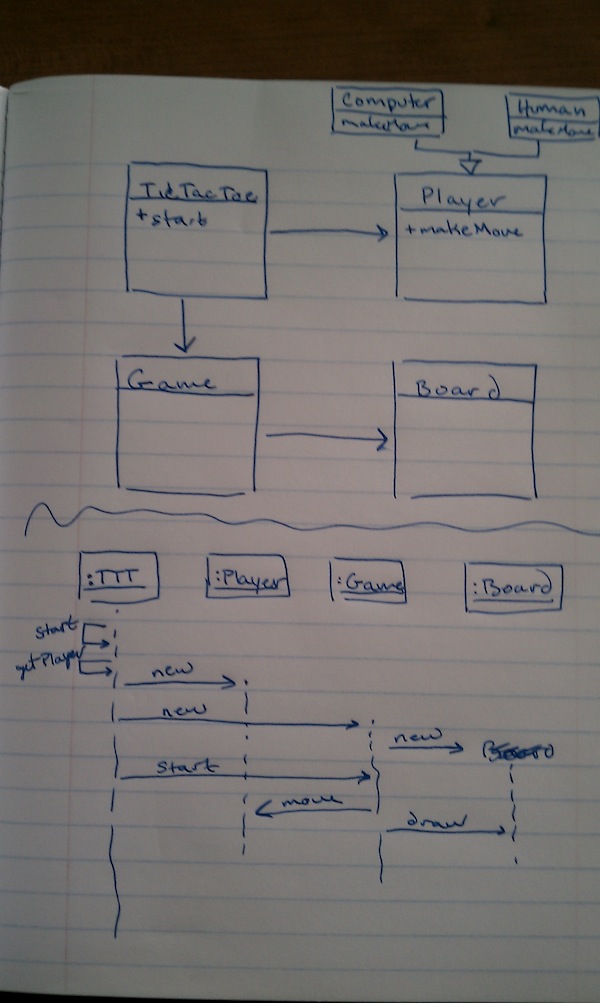 Computer
makeMove
Human
makeMove
TicTacToe
+start
Player
+makeMove
Game
Board
:TTT
:Player
:Game
:Board
start
getPlayer
new
new
new
start
move
draw